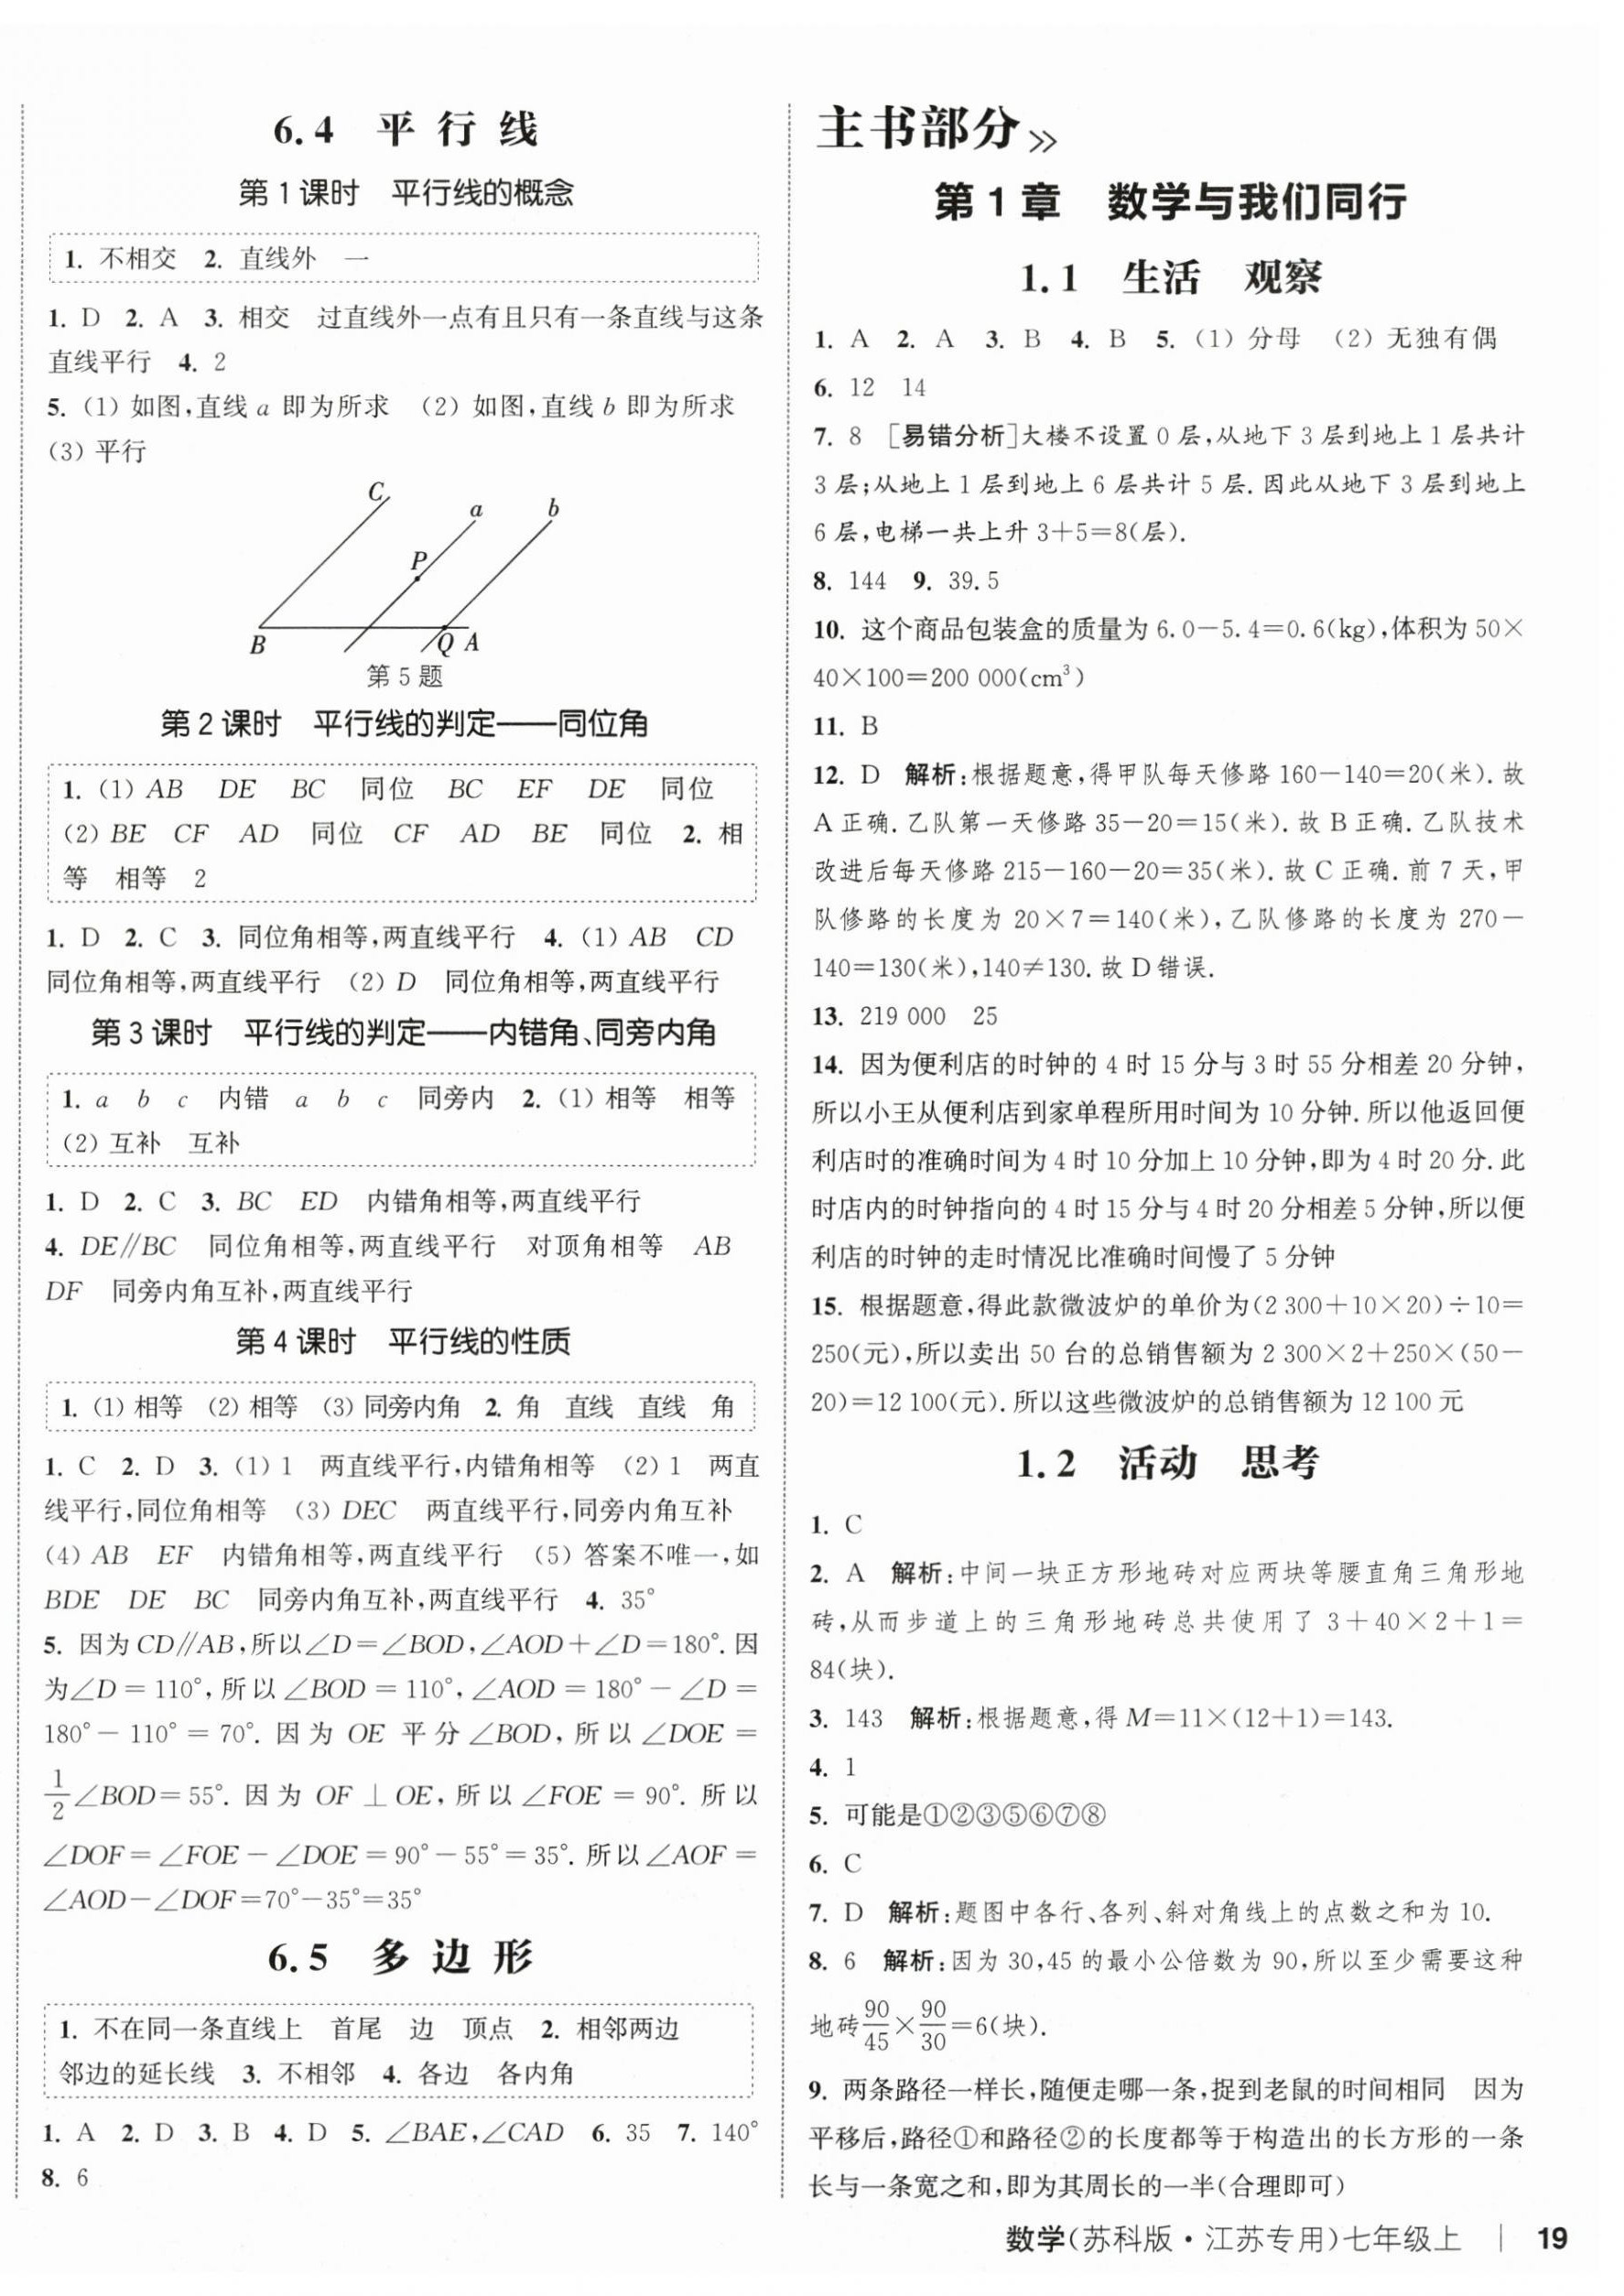 6.4 平 行 线
第1课时 平行线的概念
1. 不相交 2. 直线外 一
1. D 2. A 3. 相交 过直线外一点有且只有一条直线与这条
直线平行 4. 2
5. (1) 如图,直线 a 即为所求 (2) 如图,直线 b 即为所求
(3) 平行
C
a
b
P
B
Q A
第5题
第2课时 平行线的判定——同位角
1. (1) AB DE BC 同位 BC EF DE 同位
(2) BE CF AD 同位 CF AD BE 同位 2. 相
等 相等 2
1. D 2. C 3. 同位角相等,两直线平行 4. (1) AB CD
同位角相等,两直线平行 (2) D 同位角相等,两直线平行
第3课时 平行线的判定——内错角、同旁内角
1. a b c 内错 a b c 同旁内 2. (1) 相等 相等
(2) 互补 互补
1. D 2. C 3. BC ED 内错角相等,两直线平行
4. DE∥BC 同位角相等,两直线平行 对顶角相等 AB
DF 同旁内角互补,两直线平行
第4课时 平行线的性质
1. (1) 相等 (2) 相等 (3) 同旁内角 2. 角 直线 直线 角
1. C 2. D 3. (1) 1 两直线平行,内错角相等 (2) 1 两直
线平行,同位角相等 (3) DEC 两直线平行,同旁内角互补
(4) AB EF 内错角相等,两直线平行 (5) 答案不唯一,如
BDE DE BC 同旁内角互补,两直线平行 4. 35°
5. 因为 CD∥AB,所以∠D=∠BOD,∠AOD+∠D=180°. 因
为∠D = 110°,所以∠BOD = 110°,∠AOD = 180° − ∠D =
180° − 110° = 70°. 因为 OE 平分∠BOD,所以∠DOE =
1/2∠BOD = 55°. 因为 OF ⊥ OE,所以∠FOE = 90°. 所以
∠DOF = ∠FOE − ∠DOE = 90° − 55° = 35°. 所以∠AOF =
∠AOD−∠DOF=70°−35°=35°
6.5 多 边 形
1. 不在同一条直线上 首尾 边 顶点 2. 相邻两边
邻边的延长线 3. 不相邻 4. 各边 各内角
1. A 2. D 3. B 4. D 5. ∠BAE,∠CAD 6. 35 7. 140°
8. 6
主书部分 »
第1章 数学与我们同行
1.1 生活 观察
1. A 2. A 3. B 4. B 5. (1) 分母 (2) 无独有偶
6. 12 14
7. 8 [易错分析]大楼不设置0层,从地下3层到地上1层共计
3层;从地上1层到地上6层共计5层. 因此从地下3层到地上
6层,电梯一共上升3+5=8(层).
8. 144 9. 39.5
10. 这个商品包装盒的质量为6.0−5.4=0.6(kg),体积为50×
40×100=200 000(cm³)
11. B
12. D 解析:根据题意,得甲队每天修路160−140=20(米). 故
A正确. 乙队第一天修路35−20=15(米). 故B正确. 乙队技术
改进后每天修路215−160−20=35(米). 故C正确. 前7天,甲
队修路的长度为20×7=140(米),乙队修路的长度为270−
140=130(米),140≠130. 故D错误.
13. 219 000 25
14. 因为便利店的时钟的4时15分与3时55分相差20分钟,
所以小王从便利店到家单程所用时间为10分钟. 所以他返回便
利店时的准确时间为4时10分加上10分钟,即为4时20分. 此
时店内的时钟指向的4时15分与4时20分相差5分钟,所以便
利店的时钟的走时情况比准确时间慢了5分钟
15. 根据题意,得此款微波炉的单价为(2 300+10×20)÷10=
250(元),所以卖出50台的总销售额为2 300×2+250×(50−
20)=12 100(元). 所以这些微波炉的总销售额为12 100元
1.2 活动 思考
1. C
2. A 解析:中间一块正方形地砖对应两块等腰直角三角形地
砖,从而步道上的三角形地砖总共使用了3+40×2+1=
84(块).
3. 143 解析:根据题意,得M=11×(12+1)=143.
4. 1
5. 可能是①②③⑤⑥⑦⑧
6. C
7. D 解析:题图中各行、各列、斜对角线上的点数之和为10.
8. 6 解析:因为30,45的最小公倍数为90,所以至少需要这种
地砖90/45×90/30=6(块).
9. 两条路径一样长,随便走哪一条,捉到老鼠的时间相同 因为
平移后,路径①和路径②的长度都等于构造出的长方形的一条
长与一条宽之和,即为其周长的一半(合理即可)
数学(苏科版·江苏专用)七年级上 | 19